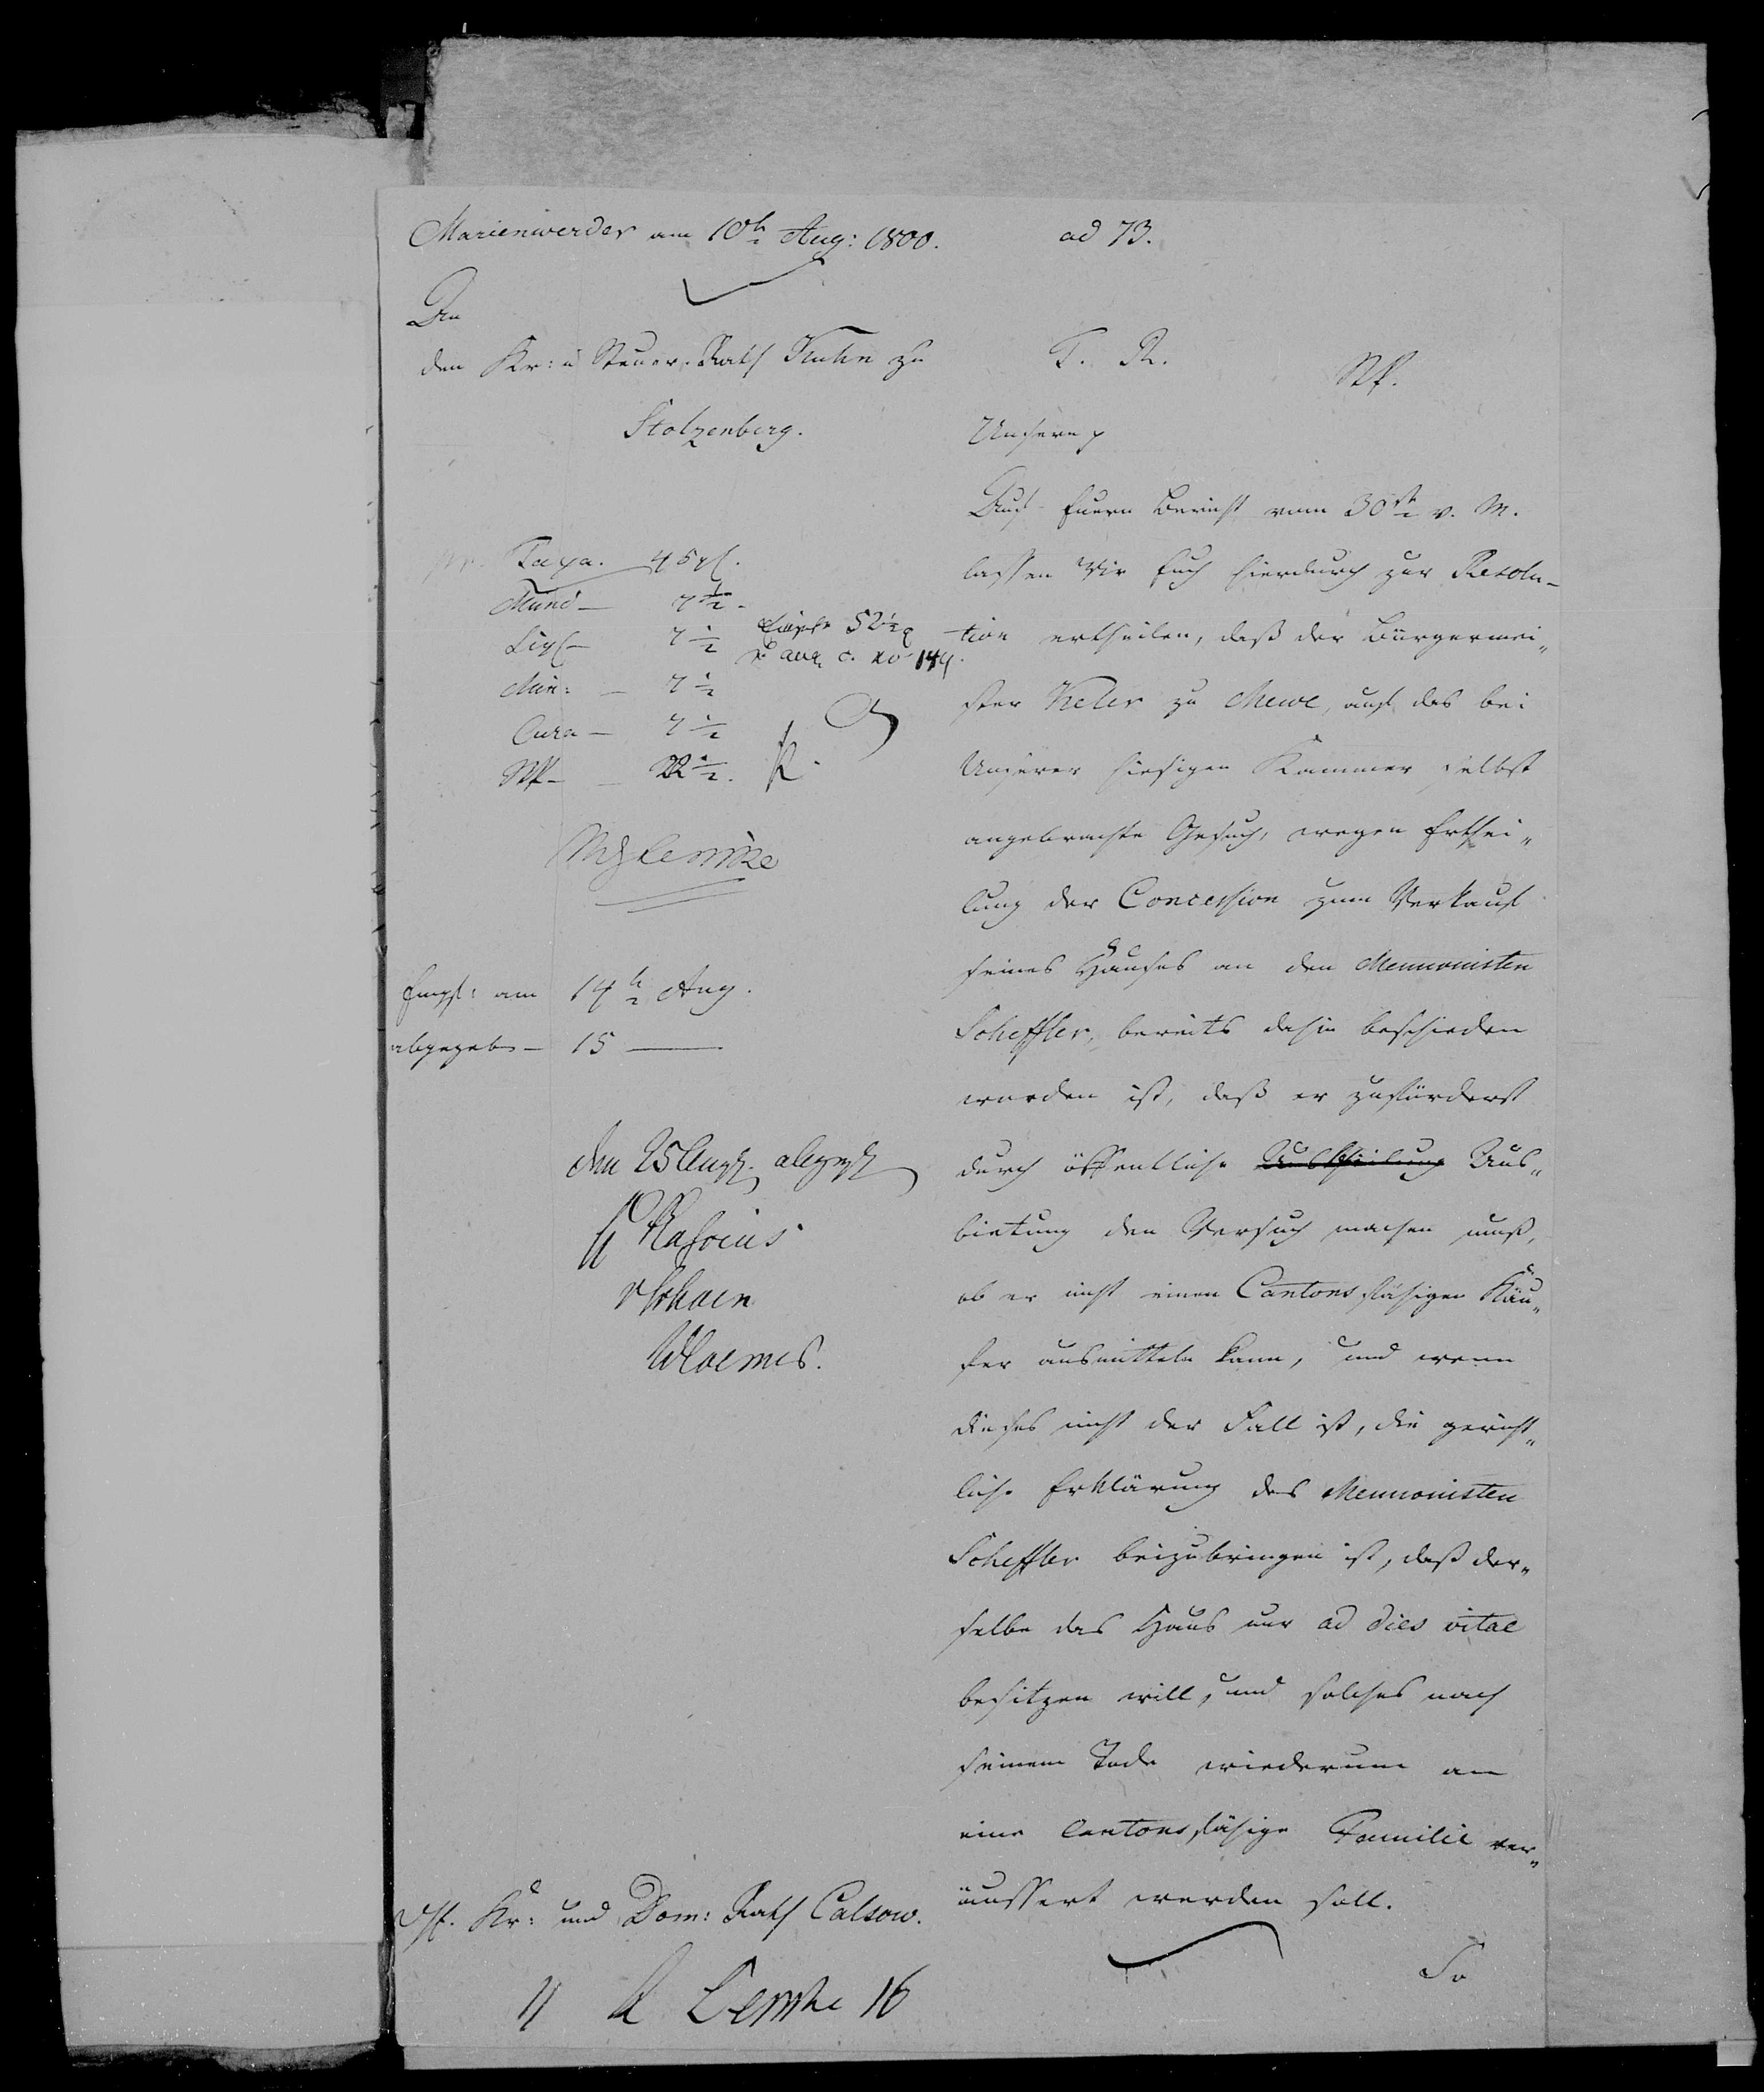 Marienwerder am 10t Aug: 1800.
ad 73.
An
den Kr: u Steuer-Rath Kuhn zu
Stolzenberg.
F. R.
Stf.
Unsern p
Auf Euern Bericht vom 30st v. M.
lassen Wir Euch hierdurch zur Resolu-
tion ertheilen, daß der Bürgermei„
ster Keler zu Mewe, auf das bei
Unserer hiesigen Kammer selbst
angebrachte Gesuch, wegen Erthei„
lung der Concession zum Verkauf
seines Hauses an den Mennonisten
Scheffler, bereits dahin beschieden
worden ist, daß er zuförderst
durch öffentliche Aus„
bietung den Versuch machen muß,
ob er nicht einen Cantonsfähigen Käu„
fer ausmitteln kann, und wenn
dieses nicht der Fall ist, die gericht„
liche Erklärung des Mennonisten
Scheffler beizubringen ist, daß der„
selbe das Haus nur ad dies vitae
besitzen will, und solches nach
seinem Tode wiederum an
eine Cantonsfähige Familie ver„
äussert werden soll.
So
Taxa. 45 gl.
Mund — 7 1/2
Sigl — 7 1/2
Min: — 7 1/2
Cura — 7 1/2
Stf — 22 1/2.
52 1/2
Lemke
Empf: am 14t Aug.
abgegeb — 15 —
den 25 Aug.
Uff. Kr: und Dom: Rath Calsow.
Lemke 16